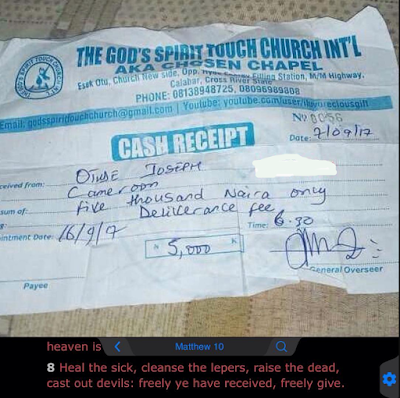 THE GOD'S SPIRIT TOUCH CHURCH INT'L
AKA CHOSEN CHAPEL
Esek Otu, Church New side, Opp. Filling Station, M/M Highway,
Calabar, Cross River State
PHONE: 08138948725, 08096989808
Email: godsspiritouchchurch@gmail.com | Youtube: youtube.com/user/
Nº 0056
CASH RECEIPT
Date: 7/09/17
ceived from: JOSEPH
Cameroon
sum of: five thousand Naira only
Deliverance fee
intment Date: 16/9/17 Time: 6.30
N 5,000 K
General Overseer
Payee
heaven is
Matthew 10
8 Heal the sick, cleanse the lepers, raise the dead,
cast out devils: freely ye have received, freely give.